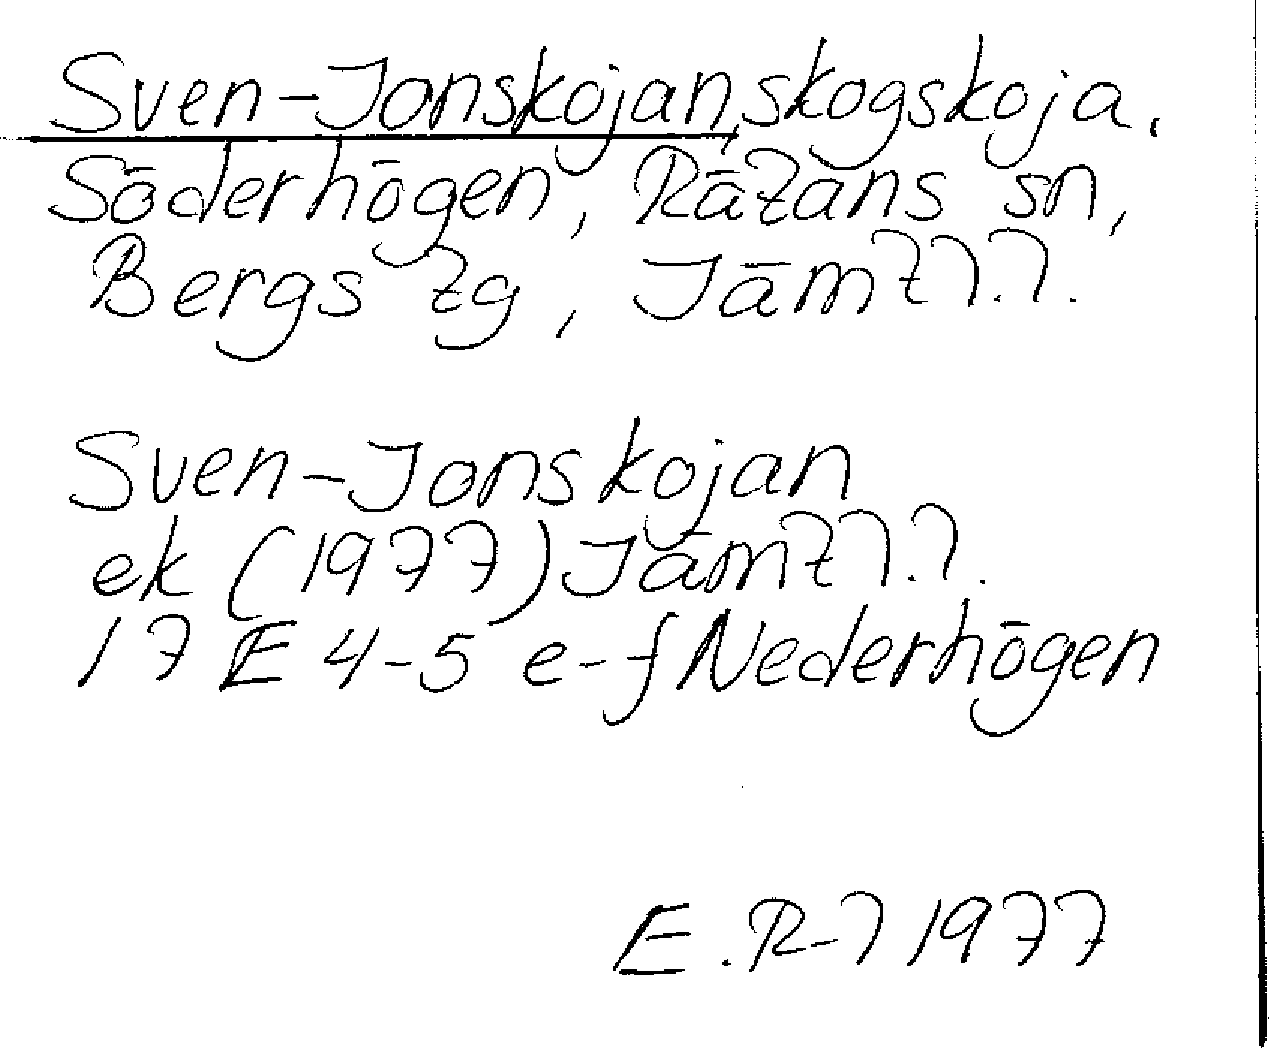 Sven-Jonskojan, skogskoja.
Söderhögen, Rätans sn,
Bergs tg, Jämtl.l.
Sven-Jonskojan
ek (1977) Jämtl.l.
17 E 4-5 e-f Nederhögen
E. R-l 1977